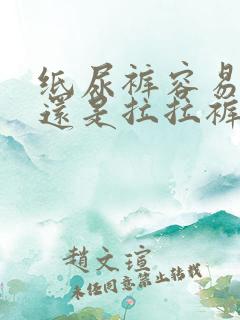 纸尿裤容易
還是拉拉裤
趙文瑄
未经同意禁止转载